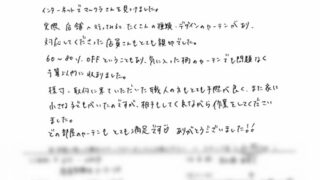 インターネットでマークラさんを見つけました。
実際、店舗へ行ってみるとたくさんの種類・デザインのカーテンがあり、
対応してくださった店員さんもとても親切でした。
60～80% OFFということもあり、気に入った柄のカーテンでも問題なく
予算以内に収まりました。
採寸・取付に来ていただいた職人の方もとても手際が良く、また家に
小さな子どもがいたのですが、相手もしてくれながら作業をしてください
ました。
どの部屋のカーテンもとても満足です!! ありがとうございました!!